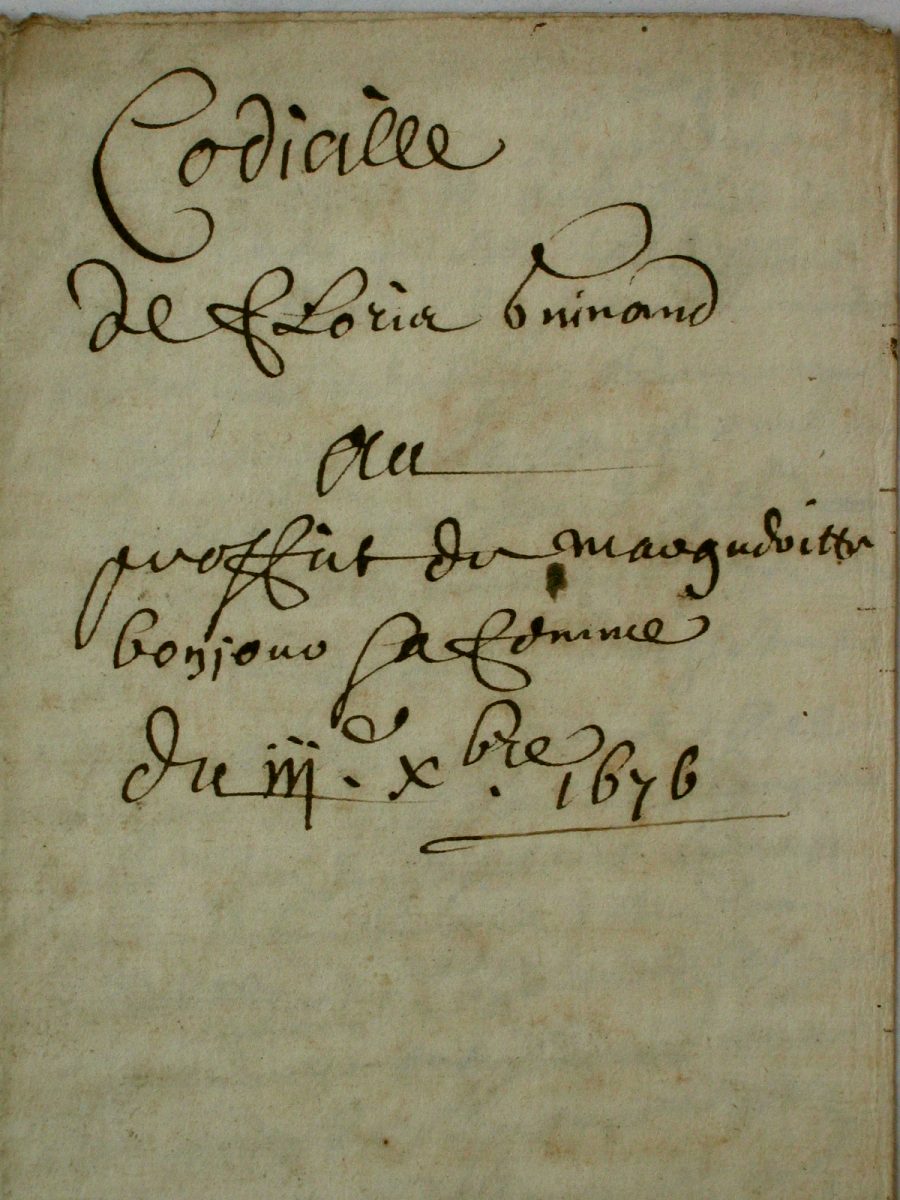 Codicille
de Floria buinand
Au
proffit de margueritte
bonjour sa femme
du iij.e xbre 1676